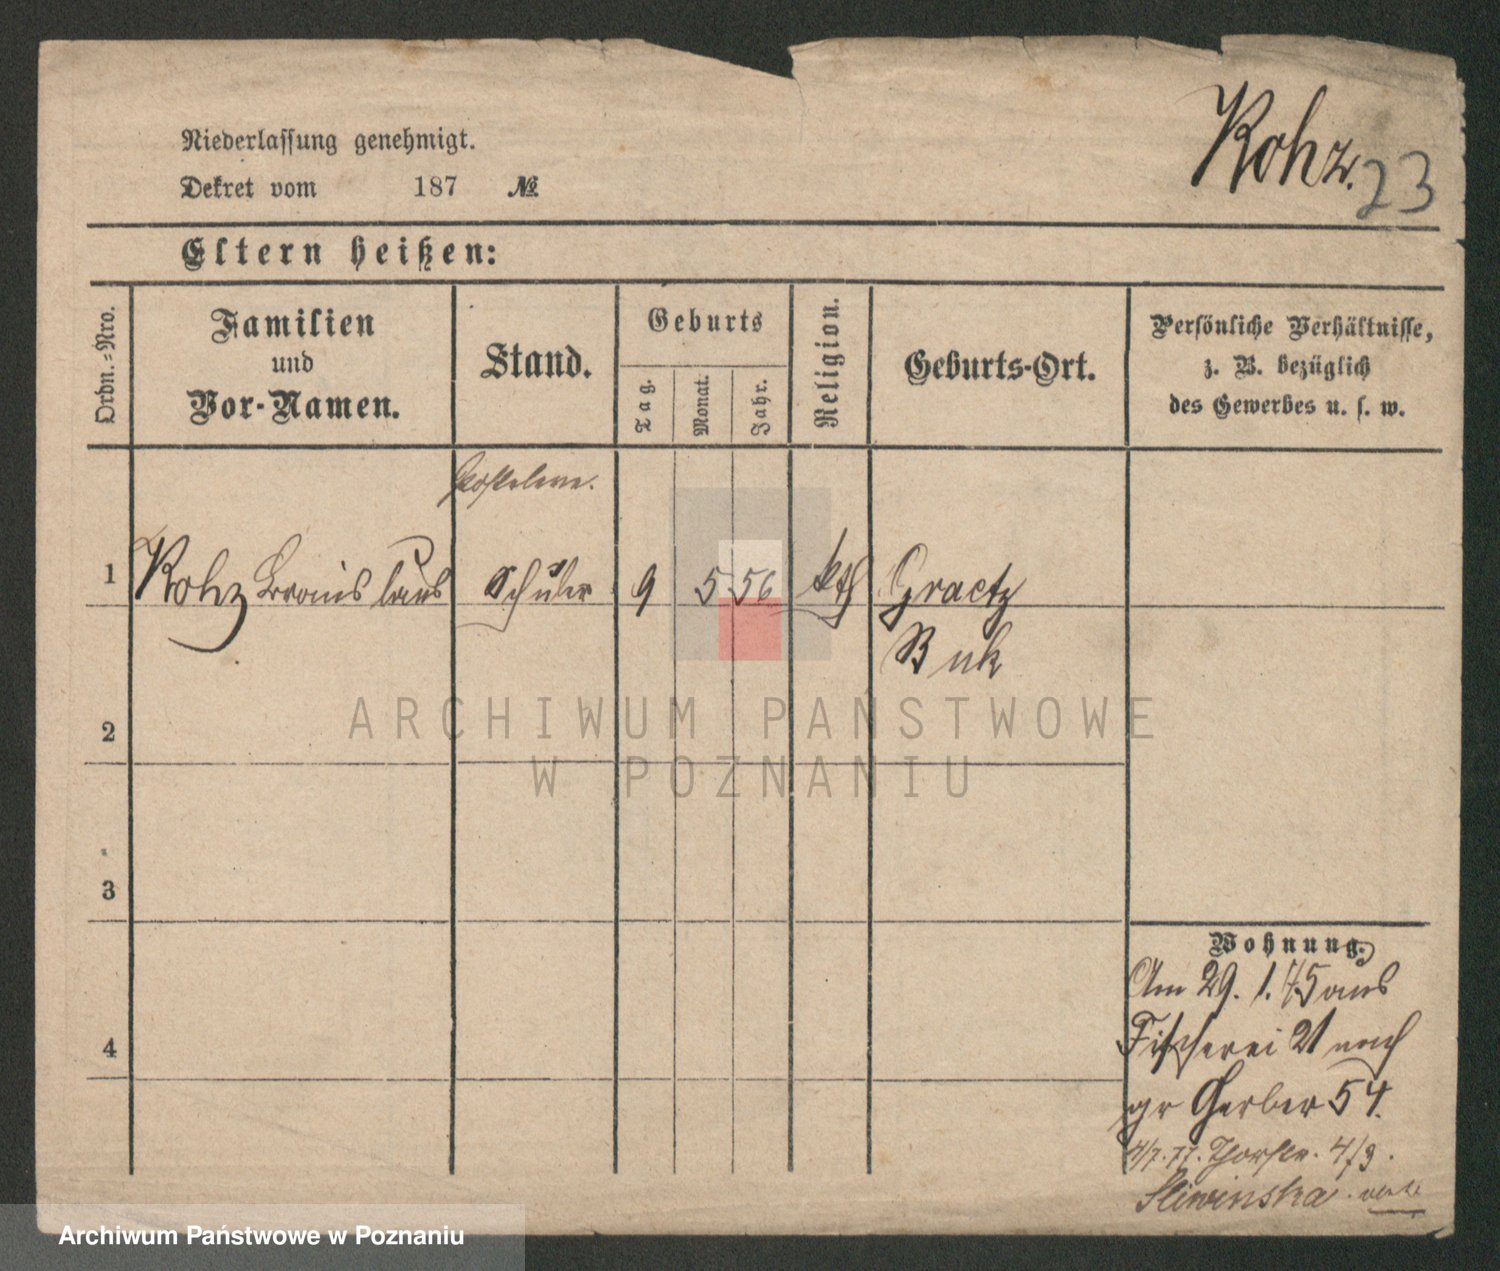 Niederlassung genehmigt.
Rohz.
23
Dekret vom 187 №
Eltern heißen:
Ordn.-Nro.
Familien
und
Vor-Namen.
Stand.
Geburts
Tag.
Monat.
Jahr.
Religion.
Geburts-Ort.
Persönliche Verhältnisse,
z. B. bezüglich
des Gewerbes u. s. w.
Posteleve.
1 Rohz Bronislaus Schüler 9 5 56 kth Graetz
Buk
ARCHIWUM PAŃSTWOWE
W POZNANIU
2
3
4
Wohnung.
Am 29. 1. 75 aus
Fischerei 21 nach
gr Gerber 54.
4/7. 77. Thorstr. 4/3.
Sliwinska
Archiwum Państwowe w Poznaniu